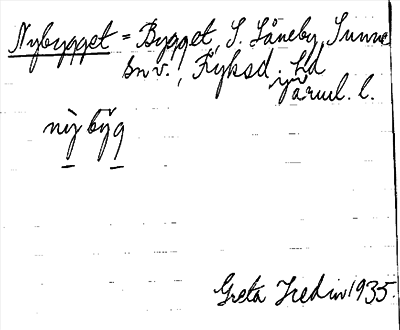 Nybygget = Bygget, S. Låneby, Sunne
sn v.; Fryksd. hd
i Värml. l.
nỳ by̆g
Greta Hedin 1935.